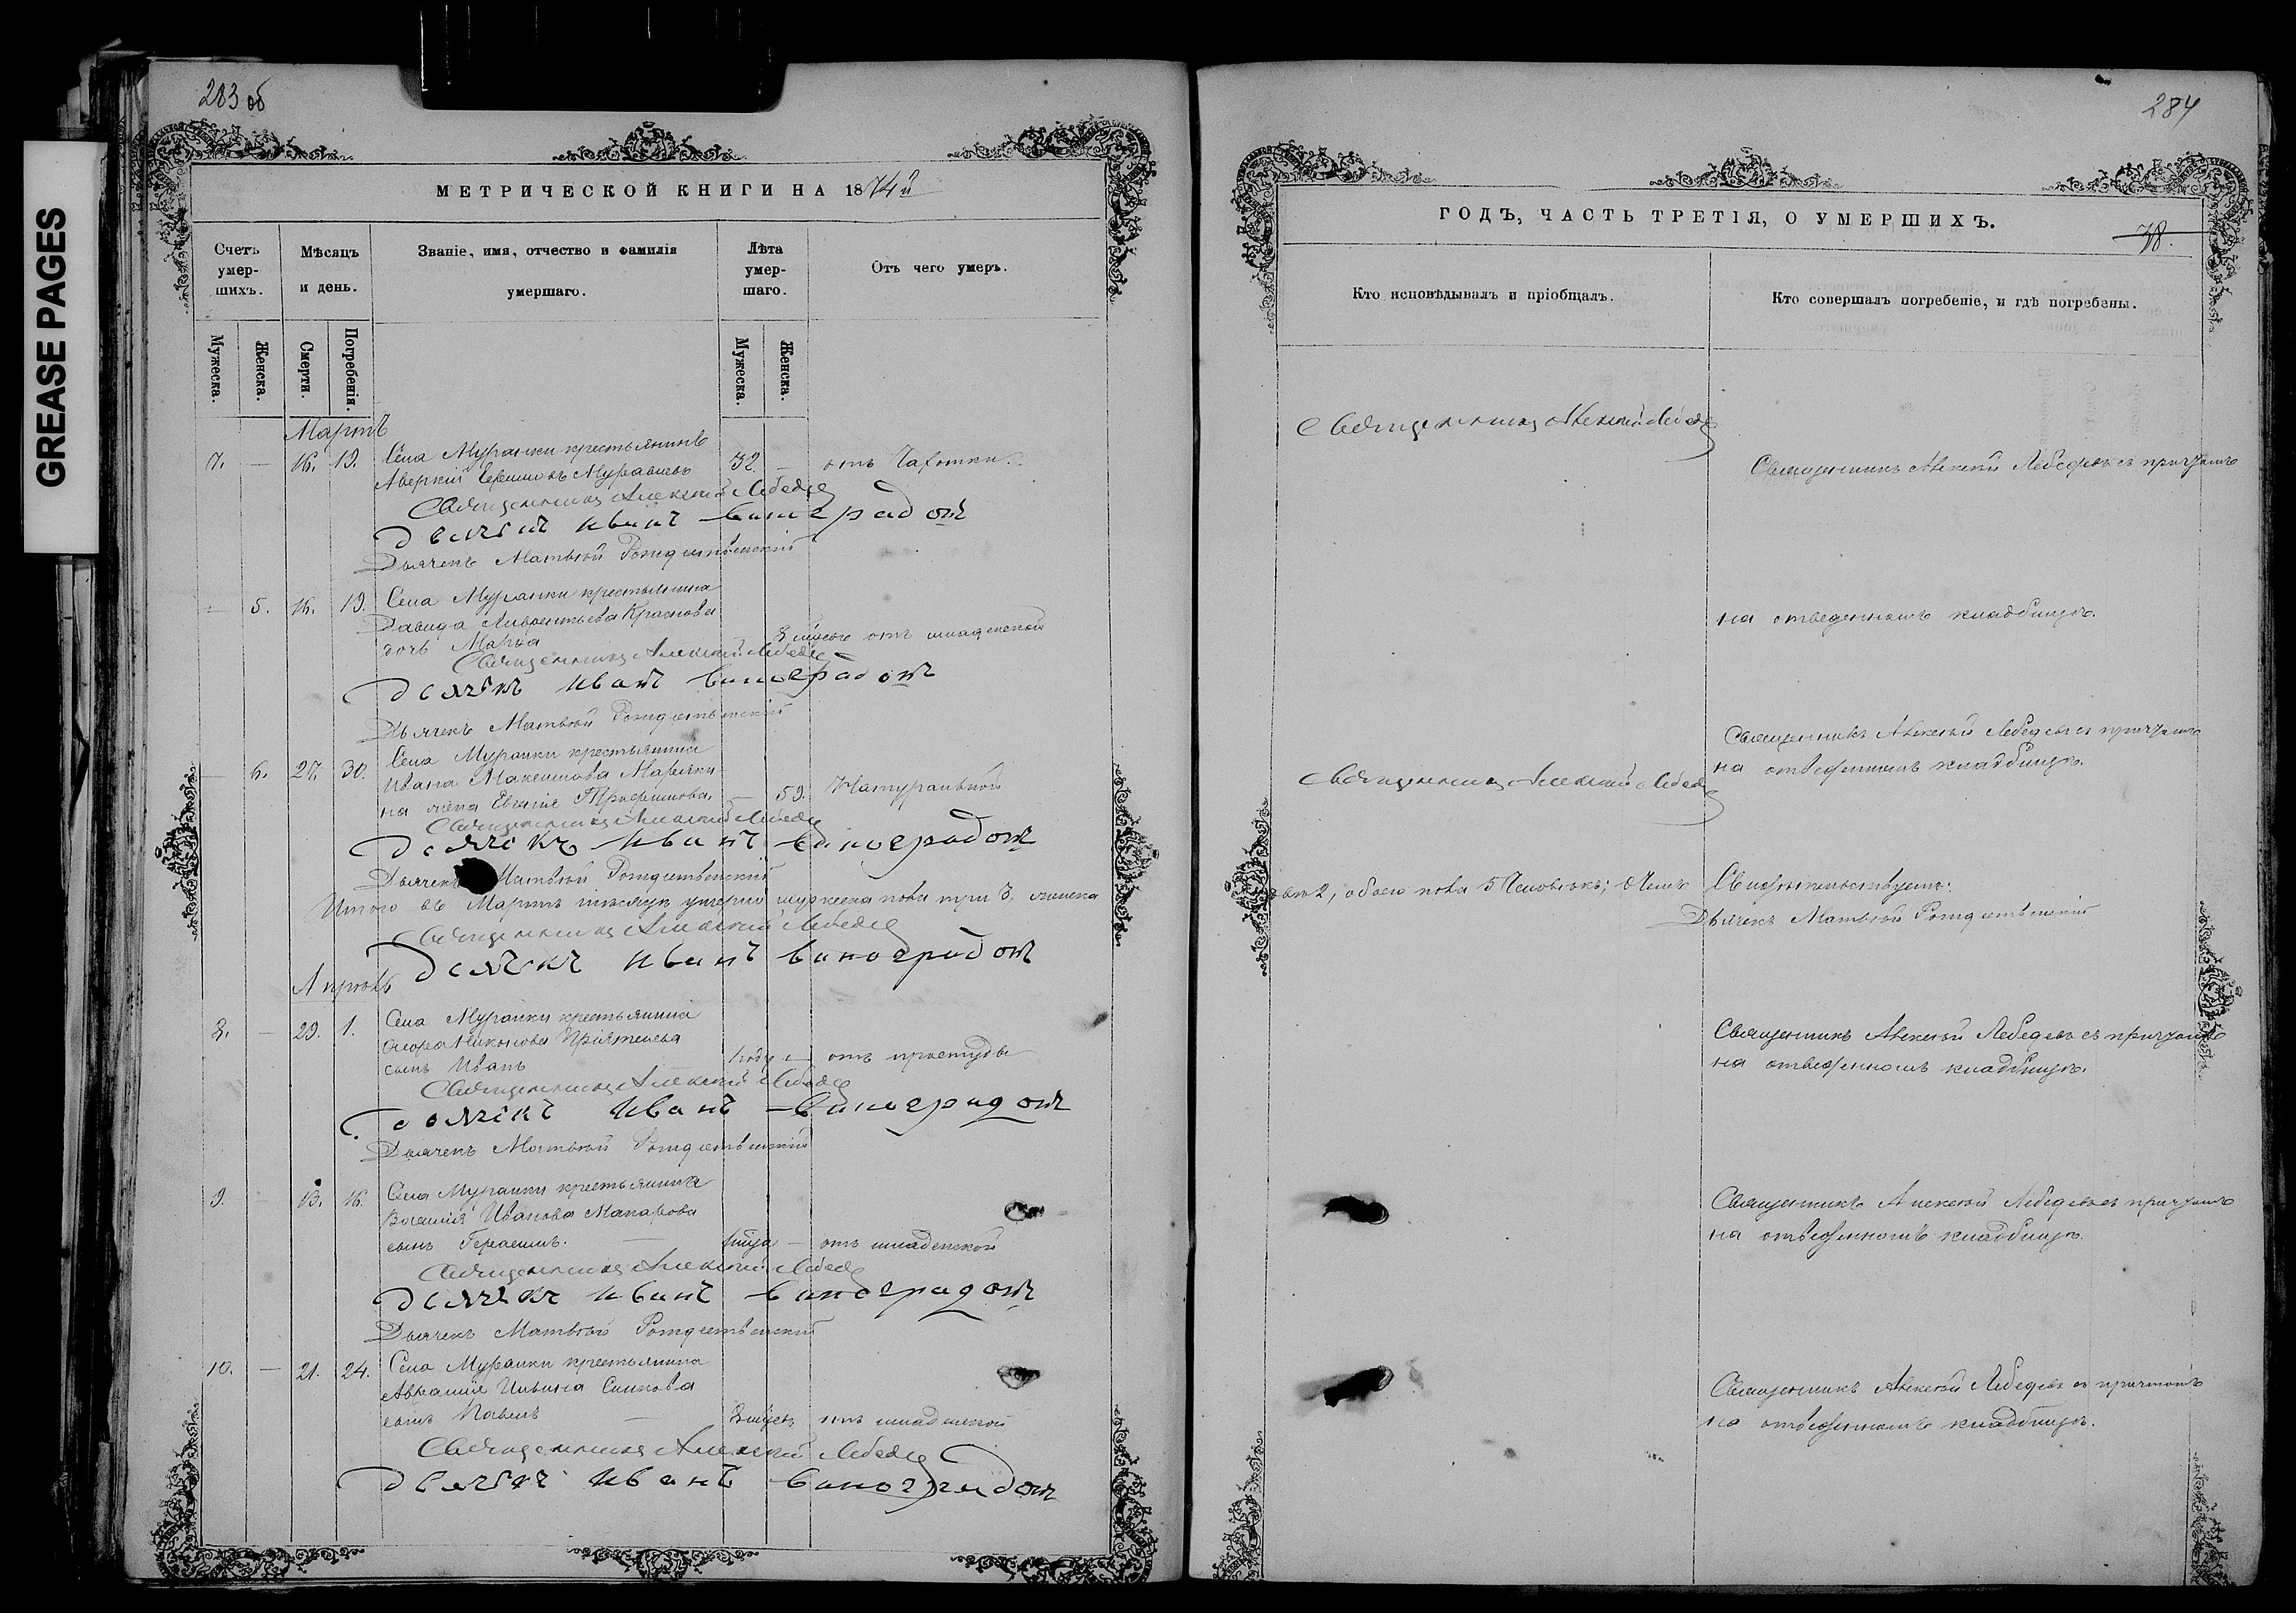 GREASE PAGES
283 об
МЕТРИЧЕСКОЙ КНИГИ НА 1874й
Счетъ умер-шихъ.
Мѣсяцъ и день.
Званіе, имя, отчество и фамилія умершаго.
Лѣта умер-шаго.
Отъ чего умеръ.
Мужеска.
Женска.
Смерти.
Погребенія.
Мужеска.
Женска.
Мартъ
7. — 16. 19. Села Муранки крестьянинъ 32 — отъ Чахотки.
Аверкій Муравьевъ
Священникъ Алексий Лебедев
Дьячекъ Иванъ Виноградовъ
Дьячекъ Матвѣй Рождественскій
— 5. 16. 19. Села Муранки крестьянина
Давида Лаврентьева Краснова
дочь Марья отъ младенской
Священникъ Алексий Лебедев
Дьячекъ Иванъ Виноградовъ
Дьячекъ Матвѣй Рождественскій
— 6. 27. 30. Села Муранки крестьянина
Ивана Максимова
на жена Евгенія — 59. Натуральной
Священникъ Алексий Лебедев
Дьячекъ Иванъ Виноградовъ
Дьячекъ Матвѣй Рождественскій
Итого въ Мартѣ мѣсяцѣ умерло мужеска пола три 3, женска
Священникъ Алексий Лебедев
Дьячекъ Иванъ Виноградовъ
Апрѣль
8. — 29. 1. Села Муранки крестьянина
Никонова Пріятелева
сынъ Иванъ — отъ простуды
Священникъ Алексий Лебедев
Дьячекъ Иванъ Виноградовъ
Дьячекъ Матвѣй Рождественскій
9. — 13. 16. Села Муранки крестьянина
Василія Иванова Макарова
сынъ Герасимъ. — — отъ младенской
Священникъ Алексий Лебедев
Дьячекъ Иванъ Виноградовъ
Дьячекъ Матвѣй Рождественскій
10. — 21. 24. Села Муранки крестьянина
Авраамія Ильина
сынъ Павелъ — отъ младенской
Священникъ Алексий Лебедев
Дьячекъ Иванъ Виноградовъ
284
ГОДЪ, ЧАСТЬ ТРЕТІЯ, О УМЕРШИХЪ.
38.
Кто исповѣдывалъ и пріобщалъ.
Кто совершалъ погребеніе, и гдѣ погребены.
Священникъ Алексий Лебедев
Священникъ Алексѣй Лебедевъ съ причтомъ
на отведенномъ кладбищѣ.
Священникъ Алексѣй Лебедевъ съ причтомъ
на отведенномъ кладбищѣ.
Священникъ Алексий Лебедев
2, обоего пола 5 Человѣкъ; Свидѣтельствуемъ:
Дьячекъ Матвѣй Рождественскій
Священникъ Алексѣй Лебедевъ съ причтомъ
на отведенномъ кладбищѣ.
Священникъ Алексѣй Лебедевъ съ причтомъ
на отведенномъ кладбищѣ.
Священникъ Алексѣй Лебедевъ съ причтомъ
на отведенномъ кладбищѣ.